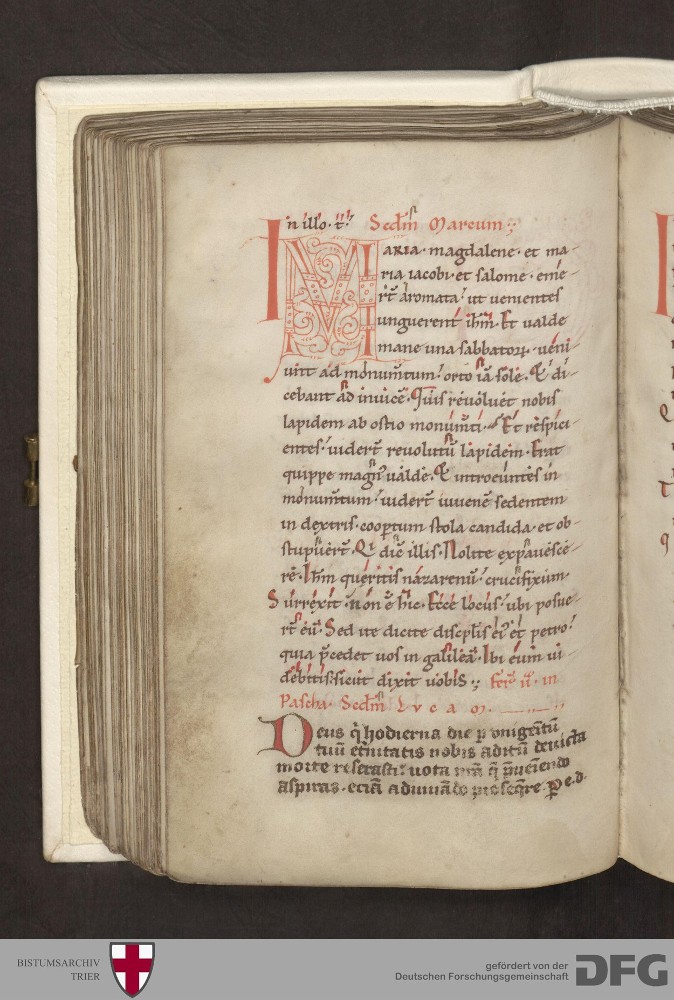 In illo · t̄ꝑ Secd̄m Marcum
MARIA · magdalene · et ma-
ria iacobi · et salome · eme-
rt̄ aromata ut venientes
unguerent ih̄m · Et valde
mane una sabbatoꝝ · ueni-
unt ad monum̄tum orto iā sole · Et di-
cebant ad inuicē · Quis reuoluet nobis
lapidem ab ostio monum̄ti · Et respici-
entes uidert̄ reuolutū lapidem · Erat
quippe magn᷒ ualde · Et introeuntes in
monum̄tum uidert̄ iuuenē sedentem
in dextris · coopertum stola candida · et ob-
stupuert̄ · Qi dic̄ illis · Nolite expauesce-
re · Ihm̄ queritis nazarenū · crucifixum ·
Surrexit n̄on ē hic · Ecce locus ubi posue-
rt̄ eū · Sed ite dicite discplis ei᷒ et petro
quia p̄cedet uos in galileā · Ibi eum ui-
debitis · sicut dixit uobis · Feri᷒ ii · in
Pascha · Secdm̄ Lvcam
Deus q̄ hodierna die ꝑ vnigenitū
tuū et̄nitatis nobis aditū deuicta
morte reserasti · uota nr̄a q̄ p̄ueniendo
aspiras · eciā adiuuādo prosequere · Pe · d ·
BISTUMSARCHIV
TRIER
gefördert von der
Deutschen Forschungsgemeinschaft
DFG